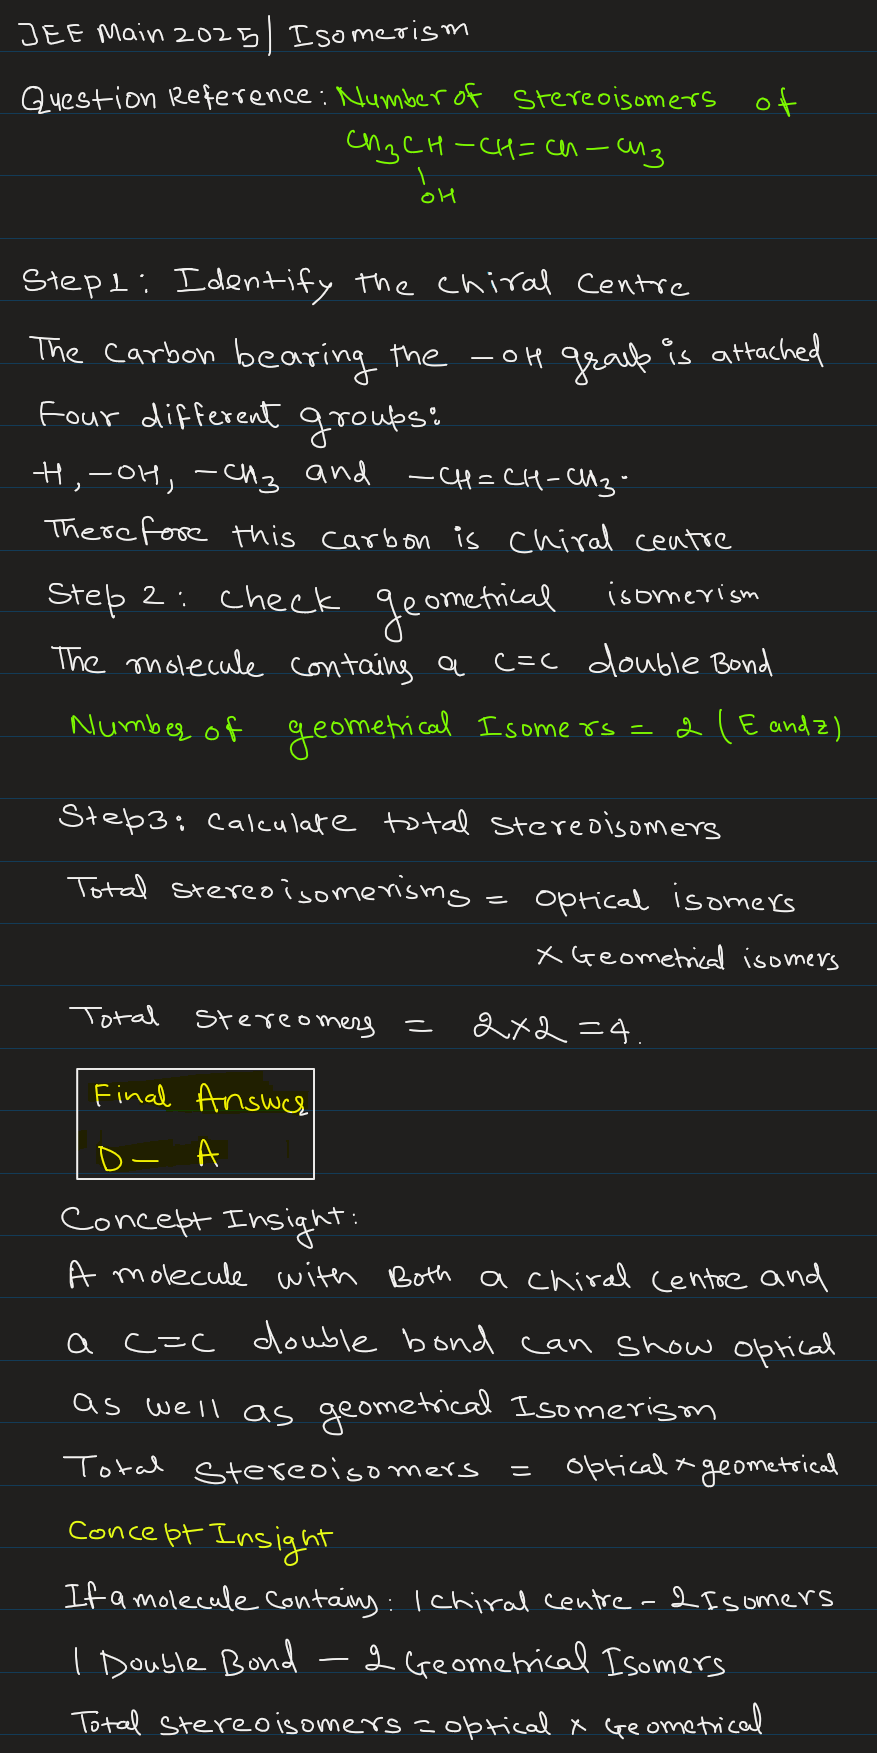 JEE Main 2025| Isomerism
Question Reference: Number of Stereoisomers of
CH3CH-CH=CH-CH3
OH
Step1: Identify the chiral Centre
The Carbon bearing the -OH group is attached
Four different groups:
-H, -OH, -CH3 and -CH=CH-CH3.
Therefore this carbon is chiral centre
Step 2: check geometrical isomerism
The molecule contains a C=C double Bond
Number of geometrical Isomers = 2 (E and z)
Step3: calculate total stereoisomers
Total stereoisomerisms = optical isomers
× Geometrical isomers
Total stereomers = 2×2=4.
Final Answer
D- A
Concept Insight:
A molecule with Both a chiral centre and
a C=C double bond can show optical
as well as geometrical Isomerism
Total stereoisomers = optical × geometrical
Concept Insight
If a molecule Contains: 1 chiral centre - 2 Isomers
1 Double Bond - 2 Geometrical Isomers
Total stereoisomers = optical × Geometrical